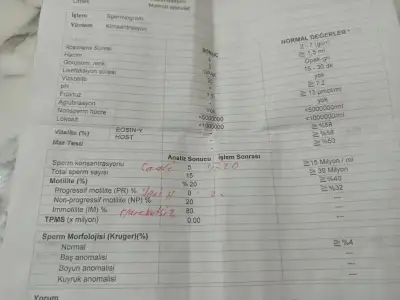 İşlem Spermiyogram
Yöntem Konsantrasyon
SONUÇ NORMAL DEĞERLER *
Hacim ≧ 1,5 ml
Likefaksiyon süresi 15 - 30 dk
Viskozite yok
pH ≧ 7.2
Fruktoz ≧ 13 μmol/ml
Aglutinasyon yok
Nonsperm hücre <5000000 <5000000/ml
Lökosit <1000000 <1000000/ml
Vitalite (%) EOSIN-Y ≧%58
HOST ≧%58
Mar Testi
Analiz Sonucu İşlem Sonrası
Sperm konsantrasyonu 5 ≧15 Milyon / ml
Total sperm sayısı 15 ≧39 Milyon
Motilite (%) % 20 ≧%40
Progressif motilite (PR) % 0 ≧%32
Non-progressif motilite (NP) % 20 ---
Immotilite (IM) % 80 ---
TPMS (x milyon) 0.00 ---
Sperm Morfolojisi (Kruger)(%)
Normal ≧%4
Baş anomalisi ---
Boyun anomalisi ---
Kuyruk anomalisi ---
Yorum